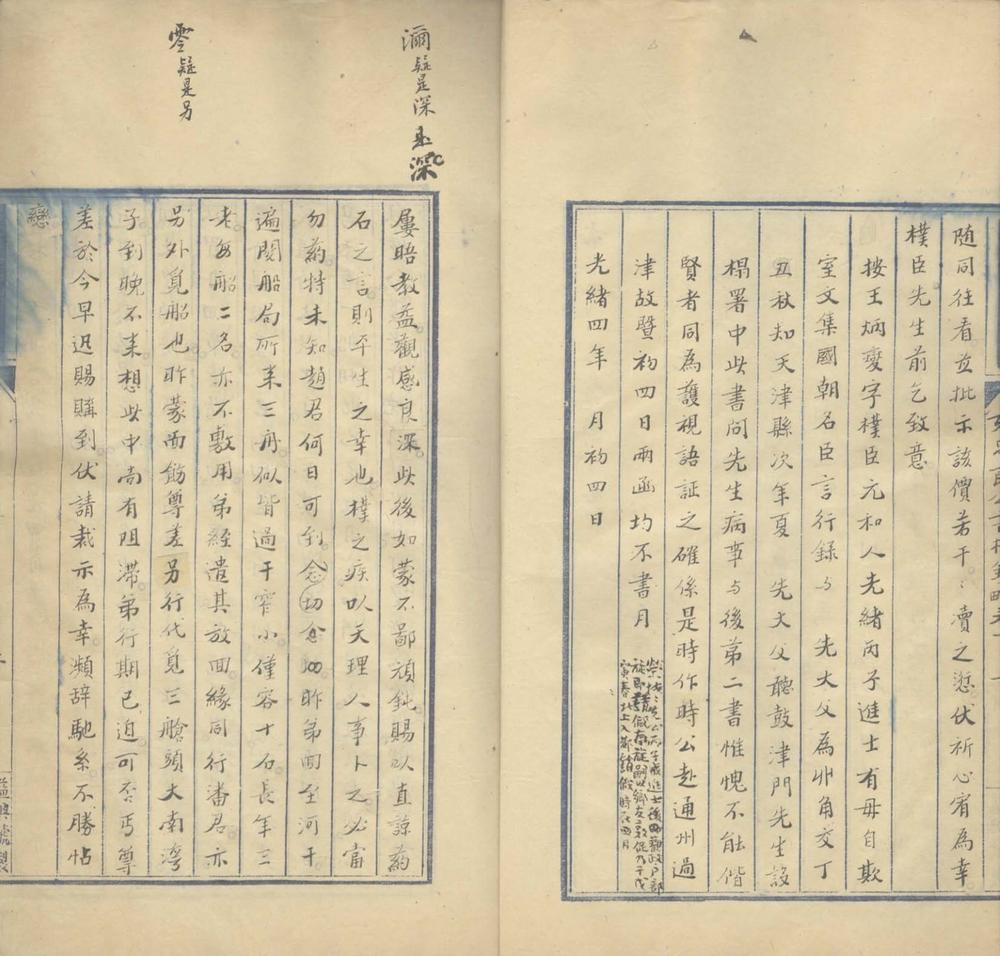 随同往看並批示該價若干賣之愆伏祈心宥為幸
樸臣先生前乞致意
按王炳燮字樸臣元和人光緒丙子進士有毋自欺
室文集國朝名臣言行録与 先大父為丱角交丁
丑秋知天津縣次年夏 先大父聽鼓津門先生設
榻署中此書問先生病事与後第二書惟愧不能偕
賢者同為護視語証之確係是時作時公赴通州過
津故暨初四日兩函均不書月
光緒四年 月初四日
瀰疑是深 是深
零疑是另
屢晤教益觀感良深此後如蒙不鄙頑鈍賜以直諒葯
石之言則平生之幸也樸之疾以天理人事卜之必當
勿葯特未知趙君何日可到念切念切昨弟回至河干
遍閱船局所来三舟似皆過于窄小僅容十石長年三
老每船二名亦不敷用弟經遣其放回緣同行潘君亦
另外覓船也昨蒙面飭尊差另行代覓三艙頭大南灣
子到晚不来想此中尚有阻滯弟行期已迫可否丐尊
差於今早迅賜購到伏請裁示為幸瀕辞馳系不勝帖
戀